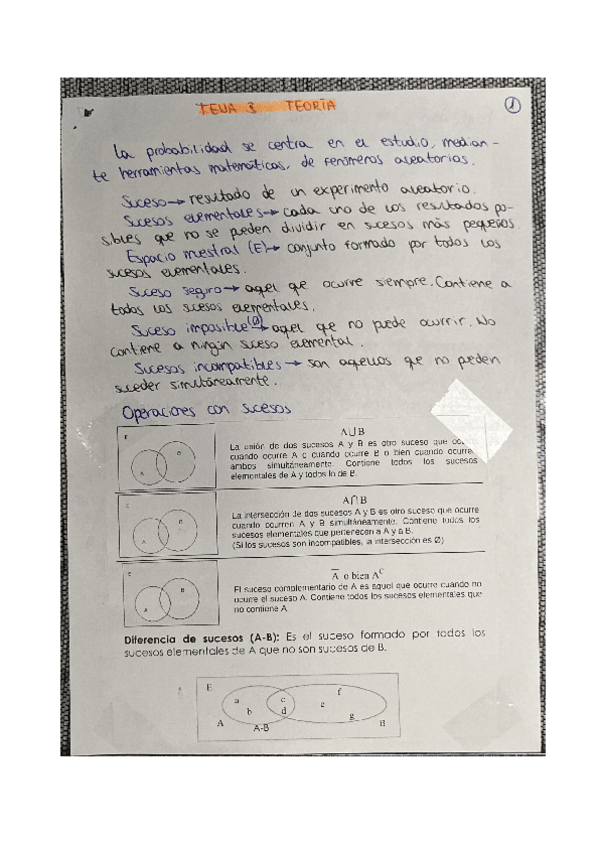 TEMA 3 TEORÍA
1
La probabilidad se centra en el estudio, median-
te herramientas matemáticas, de fenómenos aleatorios.
Suceso → resultado de un experimento aleatorio.
Sucesos elementales → cada uno de los resultados po-
sibles que no se pueden dividir en sucesos más pequeños.
Espacio mestral (E) → conjunto formado por todos los
sucesos elementales.
Suceso seguro → aquel que ocurre siempre. Contiene a
todos los sucesos elementales.
Suceso imposible (Ø) → aquel que no puede ocurrir. No
contiene a ningún suceso elemental.
Sucesos incompatibles → son aquellos que no pueden
suceder simultáneamente.
Operaciones con sucesos
E
A
B
A∪B
La unión de dos sucesos A y B es otro suceso que
cuando ocurre A o cuando ocurre B o bien cuando ocurren
ambos simultáneamente. Contiene todos los sucesos
elementales de A y todos lo de B.
E
A
B
A∩B
La intersección de dos sucesos A y B es otro suceso que ocurre
cuando ocurren A y B simultáneamente. Contiene todos los
sucesos elementales que pertenecen a A y a B.
(Si los sucesos son incompatibles, la intersección es Ø)
E
A
B
A̅ o bien Aᶜ
El suceso complementario de A es aquel que ocurre cuando no
ocurre el suceso A. Contiene todos los sucesos elementales que
no contiene A
Diferencia de sucesos (A-B): Es el suceso formado por todos los
sucesos elementales de A que no son sucesos de B.
E
a
b
c
d
e
f
g
A
A-B
B